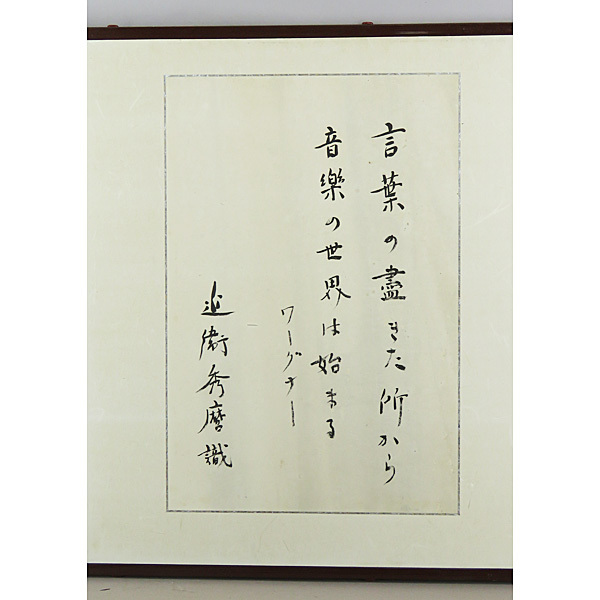 言葉の盡きた所から
音樂の世界は始まる
ワーグナー
近衛秀麿識